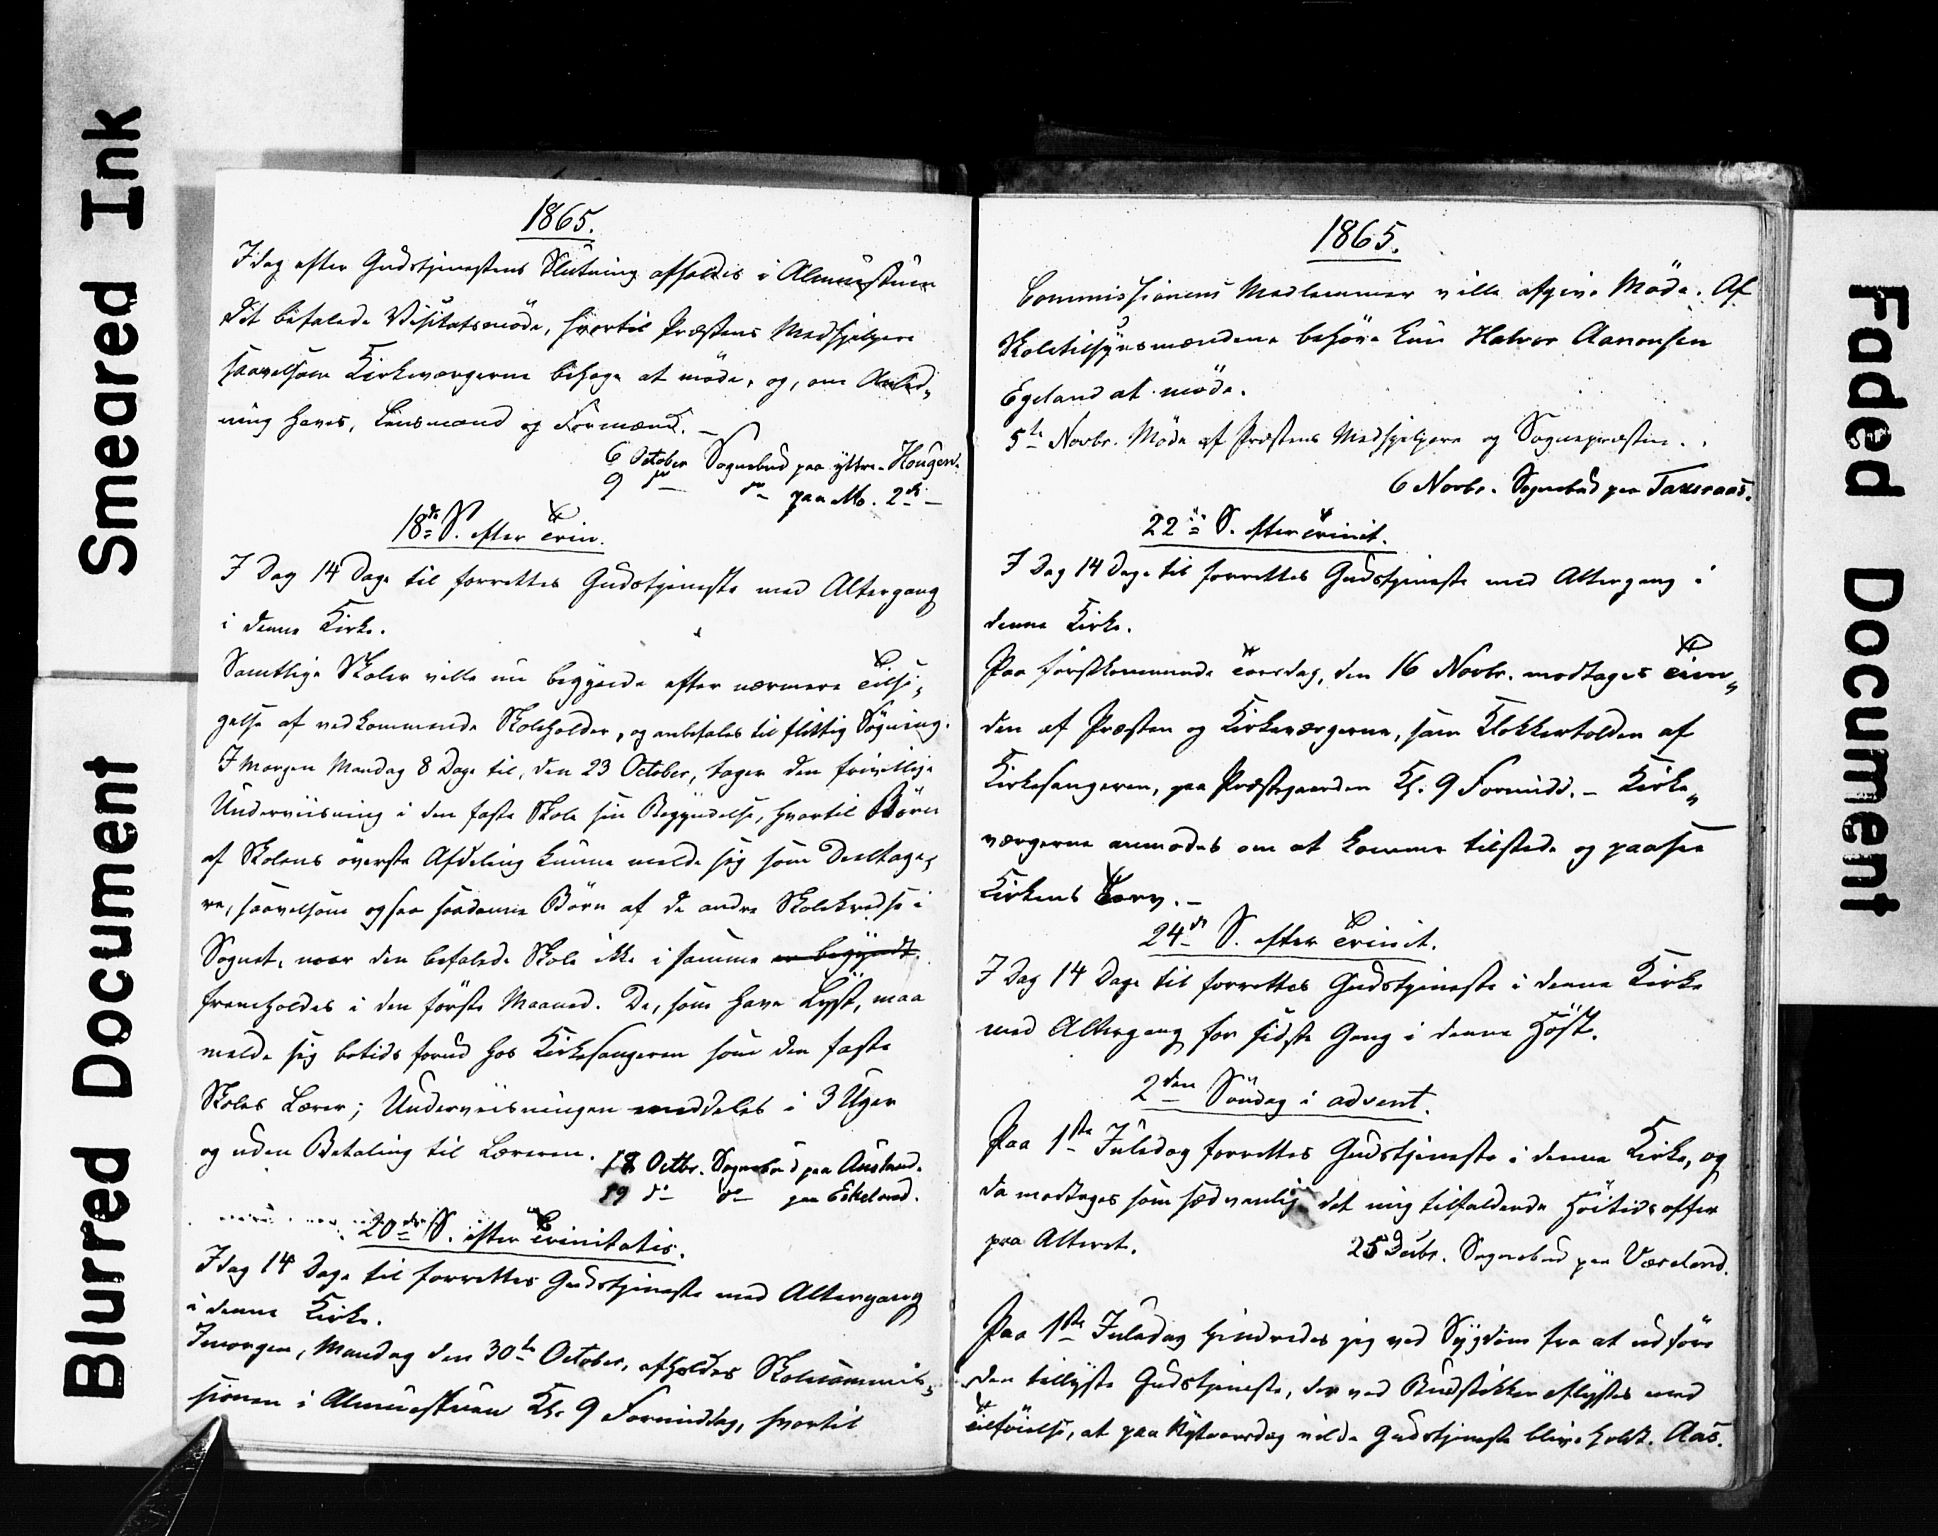 Smeared Ink
Blurred Document
Faded Document
1865.
Idag efter Gudstjenestens Slutning afholdes i Almuestuen
det befalede Visitatsmöde, hvortil Præstens Medhjelpere
saavelsom Kirkeværgerne behage at möde, og, om Anled„
ning haves, Lensmand og Formænd. –
6 October Sognebud paa yttre-Hougen.
9 do do paa Mo. 2de –
18de S. efter Trin.
I Dag 14 Dage til forrettes Gudstjeneste med Altergang
i denne Kirke.
Samtlige Skoler ville nu begynde efter nærmere Tilsi„
gelse af vedkommende Skoleholder, og anbefales til flittig Sögning.
I Morgen Mandag 8 Dage til, den 23 October, tager den frivillige
Underviisning i den faste Skole sin Begyndelse, hvortil Börn
af Skolens överste Afdeling kunne melde sig som Deeltage„
re, saavelsom ogsaa saadanne Börn af de andre Skolekredse i
Sognet, naar den befalede Skole ikke i samme er begyndt.
fremholdes i den förste Maaned. De, som have Lyst, maa
melde sig betids forud hos Kirkesangeren som den faste
Skoles Lærer; Underviisningen meddeles i 3 Uger
og uden Betaling til Læreren.
18 Octbr. Sognebud paa Ausland.
19 do do paa Eskeland.
20de S. efter Trinitatis.
Idag 14 Dage til forrettes Gudstjeneste med Altergang
i denne Kirke.
Imorgen, Mandag den 30te October, afholdes Skolecommis„
sionen i Almuestuen Kl. 9 Formiddag, hvortil
1865.
Commissionens Medlemmer ville afgive Möde. Af
Skoletilsynsmændene behöve kun Halvor Aanonsen
Egeland at möde.
5te Novbr. Möde af Præstens Medhjelpere og Sognepræsten.
6 Novbr. Sognebud paa Taxeraas.
22de S. efter Trinit.
I Dag 14 Dage til forrettes Gudstjeneste med Altergang i
denne Kirke.
Paa förstkommende Torsdag, den 16 Novbr. modtages Tien„
den af Præsten og Kirkeværgerne, som Klokkertolden af
Kirkesangeren, paa Præstegaarden Kl. 9 Formidd. – Kirke„
værgerne anmodes om at komme tilstede og paasee
Kirkens Tarv. –
24de S. efter Trinit.
I Dag 14 Dage til forrettes Gudstjeneste i denne Kirke
med Altergang for sidste Gang i denne Höst.
2den Söndag i advent.
Paa 1ste Juledag forrettes Gudstjeneste i denne Kirke, og
da modtages som sædvanlig det mig tilfaldende Höitidsoffer
paa Alteret.
25 Decbr. Sognebud paa Væreland.
Paa 1ste Juledag hindredes jeg ved Sygdom fra at udföre
den tillyste Gudstjeneste, der ved Budstikken aflystes med
Tilföielse, at paa Nytaarsdag vilde Gudstjeneste blive holdt. Aas.